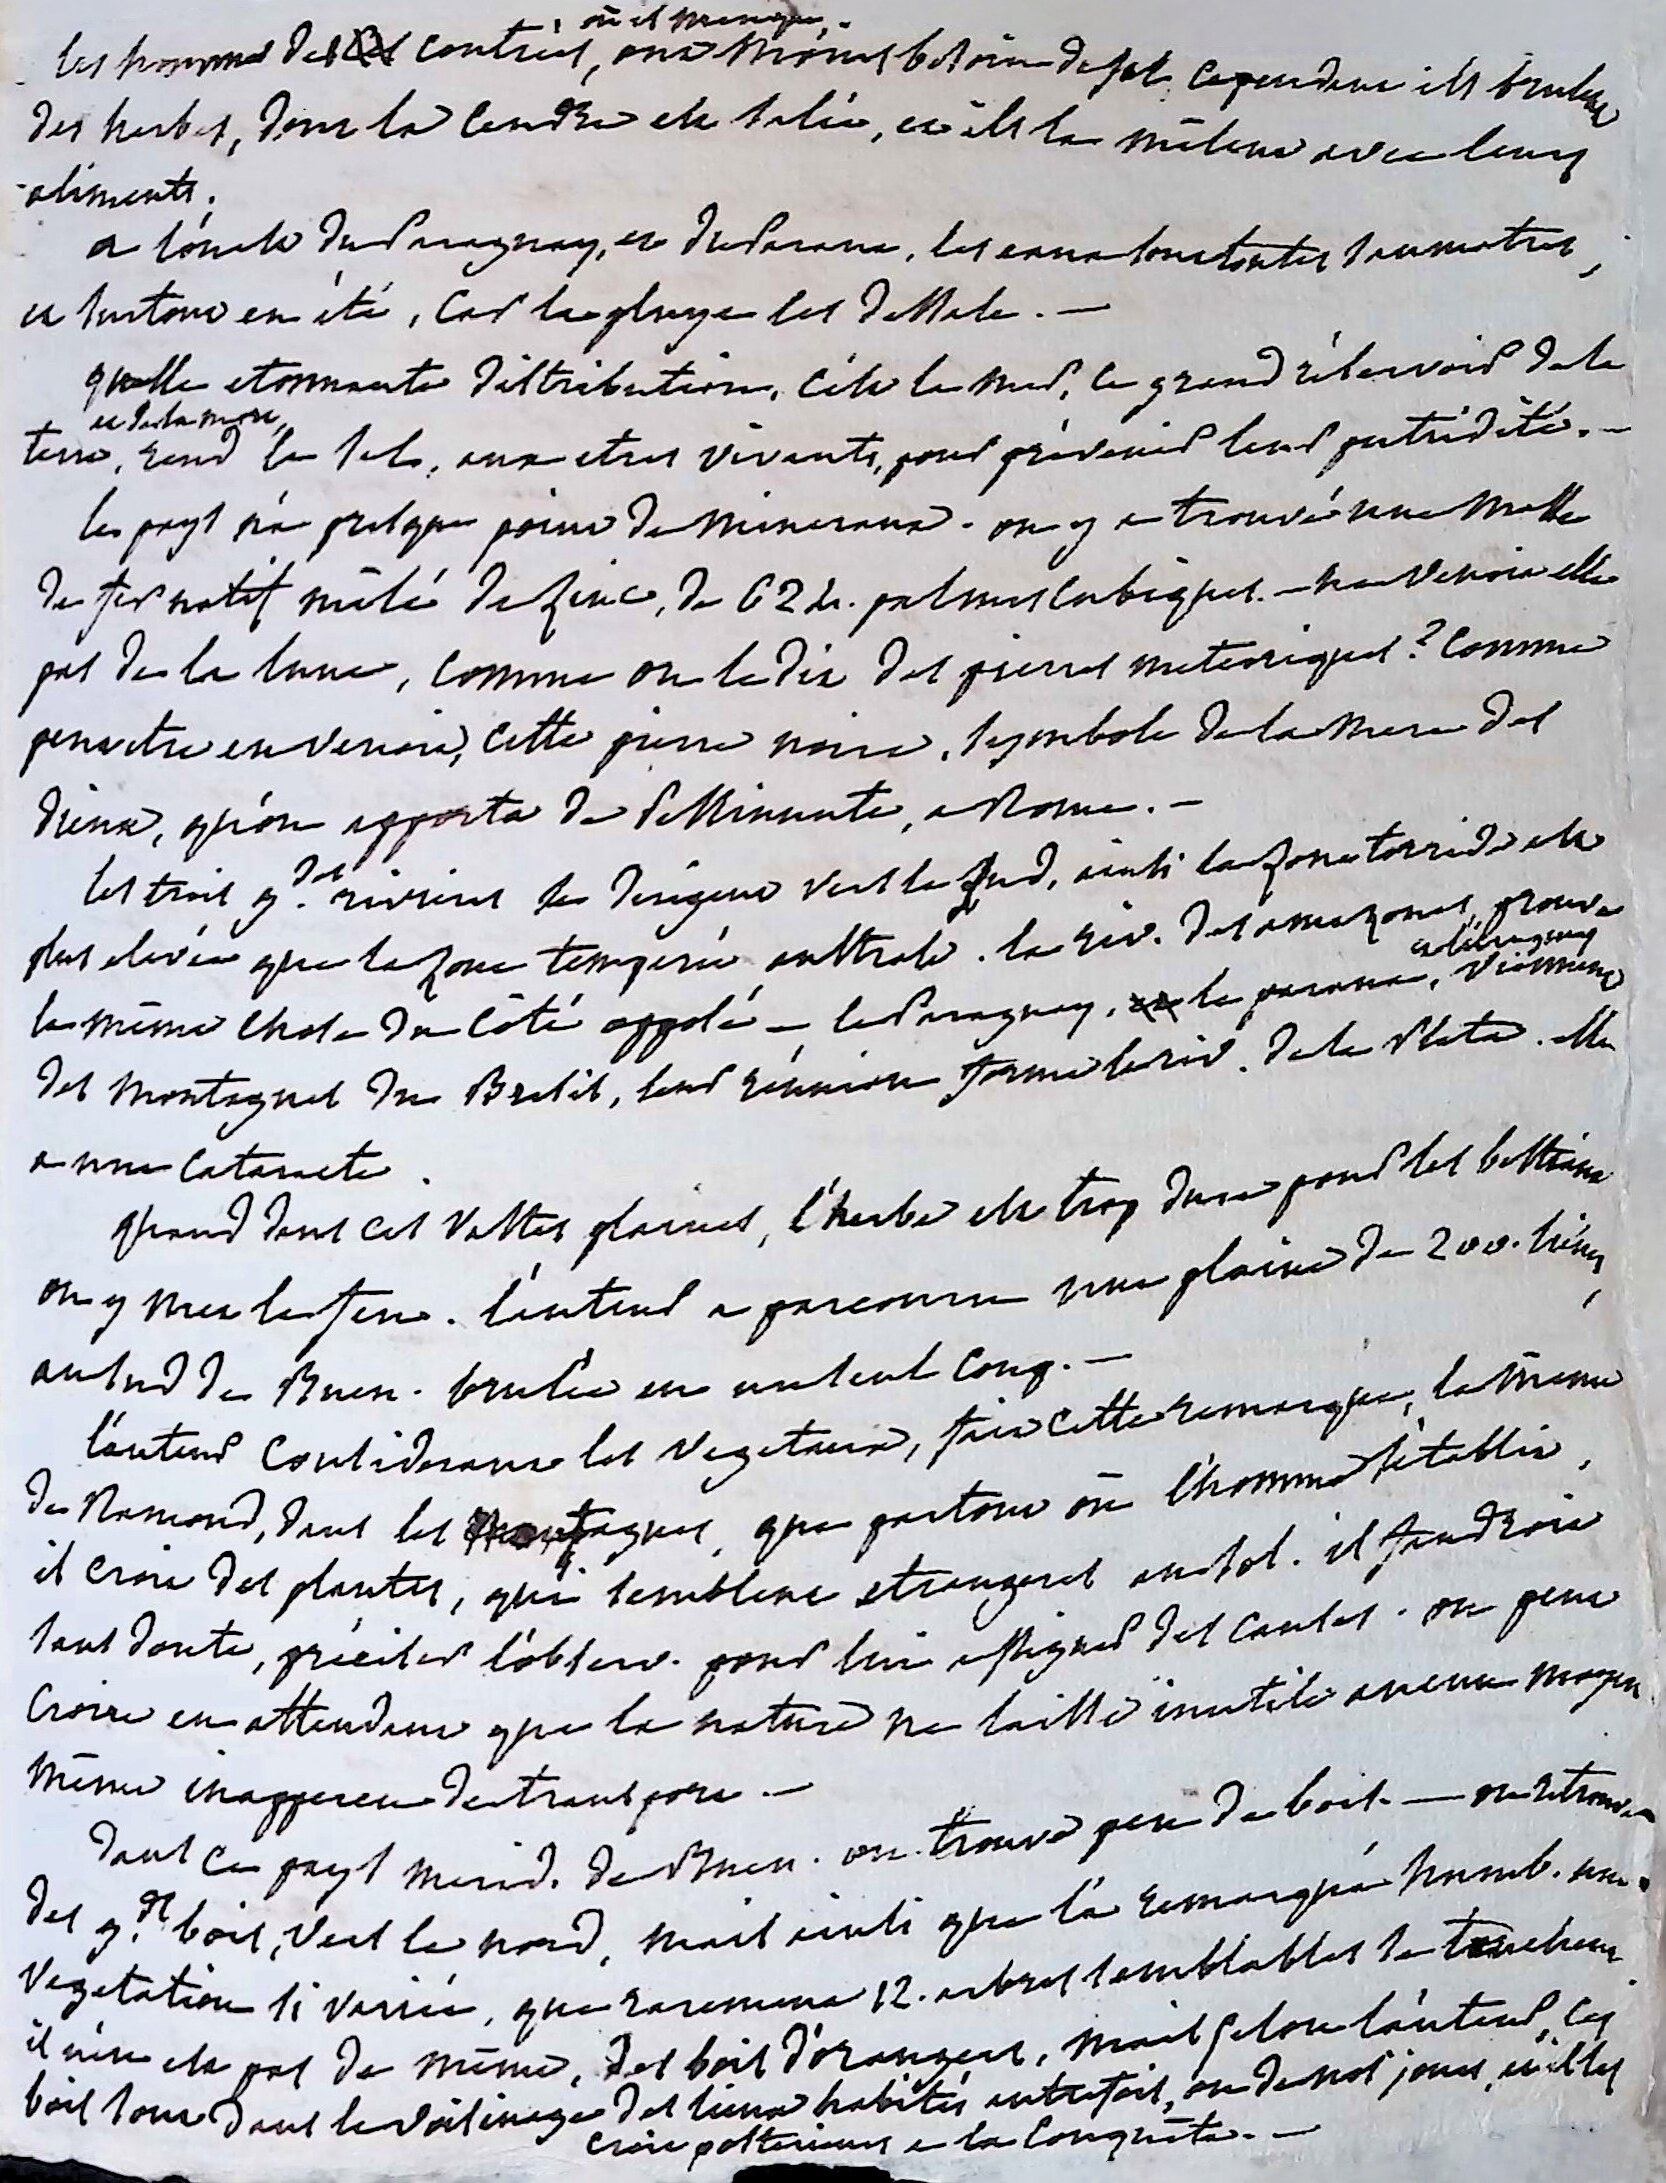 où il manque,
les hommes des contrées, ont moins besoin de sel. cependant ils brulent
des herbes, dont la cendre est salée, et ils la mêlent avec leurs
aliments.
a l'ouest du Paraguay, et du Parana, les eaux sont toutes saumatres,
et surtout en été, car la pluye les dessale. —
quelle etonnante distribution, c'est la mer, ce grand réservoir de la
et de la mort,
terre, rend le sel, aux etres vivants, pour prévenir leur putridité. —
le pays n'a presque point de mineraux. on y a trouvé une masse
de fer natif mêlé de zinc, de 622. palmes cubiques. — ne venoit elle
pas de la lune, comme on le dit des pierres meteoriques? comme
peut etre en venoit, cette pierre noire, symbole de la mere des
dieux, qu'on apporta de Pessinunte, a Rome. —
les trois g.des rivieres se dirigent vers le sud, ainsi la zone torride est
plus elevée que la zone temperée australe. la riv. des amazones, prouve
et l'uruguay
la même chose du côté opposé — le Paraguay, le parana, viennent
des montagnes du Bresil, leur réunion forme la riv. de la Plata. elle
a une cataracte.
quand dans ces vastes plaines, l'herbe est trop dure pour les bestiaux
on y met le feu. l'auteur a parcouru une plaine de 200. lieues,
au sud de Buen. brulée en un seul coup. —
l'auteur considerant les vegetaux, fait cette remarque, la même
de Ramond, dans les montagnes, que partout où l'homme s'établit,
il croit des plantes, qui semblent etrangeres au sol. il faudroit
sans doute, préciser l'observ. pour lui assigner des causes. on peut
croire en attendant que la nature ne laisse inutile aucun moyen
même inapperçu de transport. —
dans ce pays merid. de Buen. on trouve peu de bois. — on retrouve
des g.ds bois, vers le nord, mais ainsi que l'a remarqué humb. une
vegetation si variée, que rarement 12. arbres semblables se touchent.
il n'en est pas de même, des bois d'orangers, mais selon l'auteur, ces
bois sont dans le voisinage des lieux habités autrefois, ou de nos jours, et il les
croit posterieurs a la conquête. —